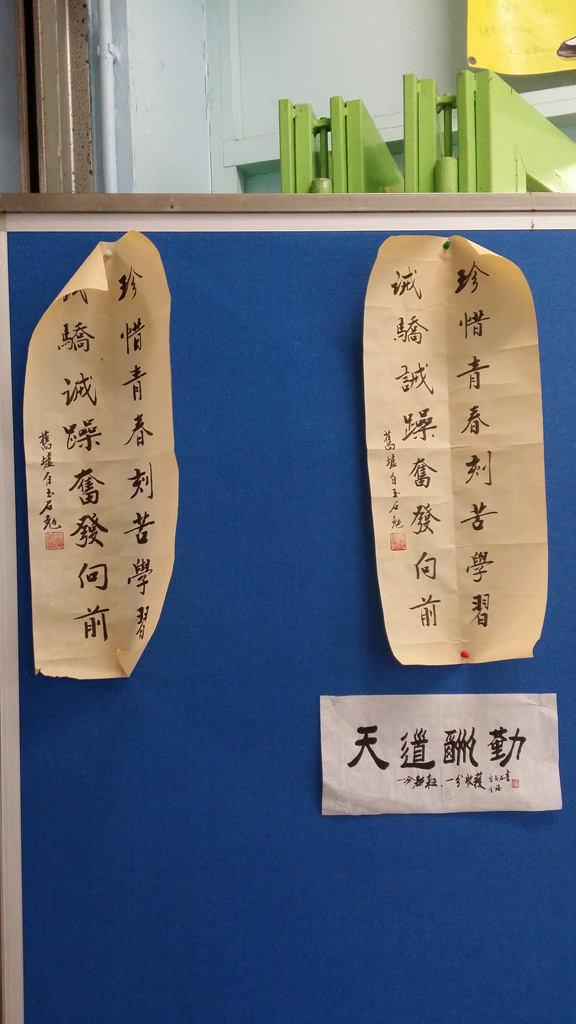 珍惜青春刻苦學習
驕誡躁奮發向前
舊墟白玉石勉
珍惜青春刻苦學習
誡驕誡躁奮發向前
舊墟白玉石勉
天道酬勤
一分耕耘、一分收穫